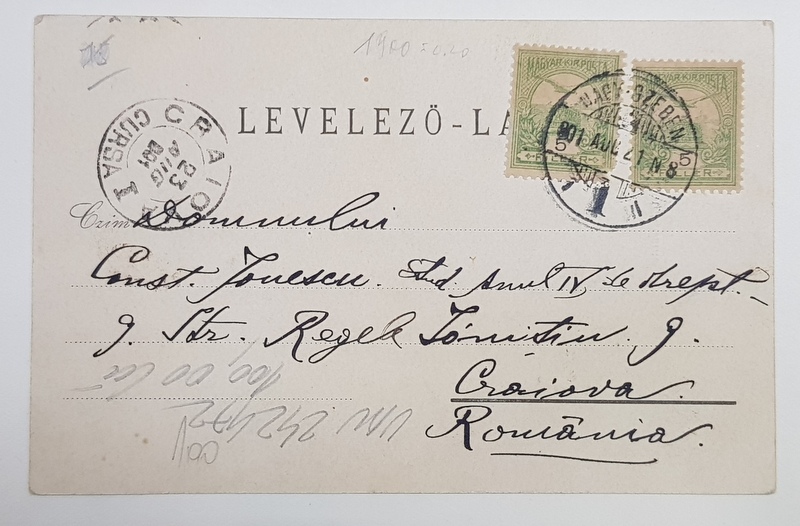 1900 =0.20
LEVELEZŐ-LA
MAGYAR·KIR·POSTA
MAGYAR·KIR·POSTA
5
5
FILLÉR
NAGY-SZEBEN
901 AUG 21 N 8
CRAIOVA
23 AUG 901
CURSA I
Czim Domnului
Const. Ionescu. Stud. Anul IV de drept.-
9. Str. Regele 9.
Craiova.
România.
100,00 lei
242472